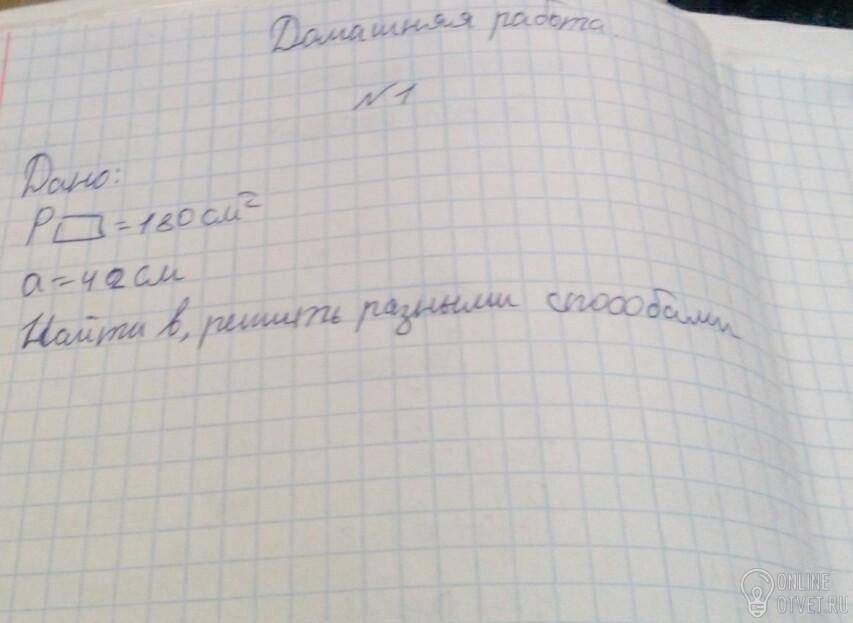 Домашняя работа.
N1
Дано:
P▭=180см²
a=42см
Найти в, решить разными способами
ONLINE
OTVET.RU